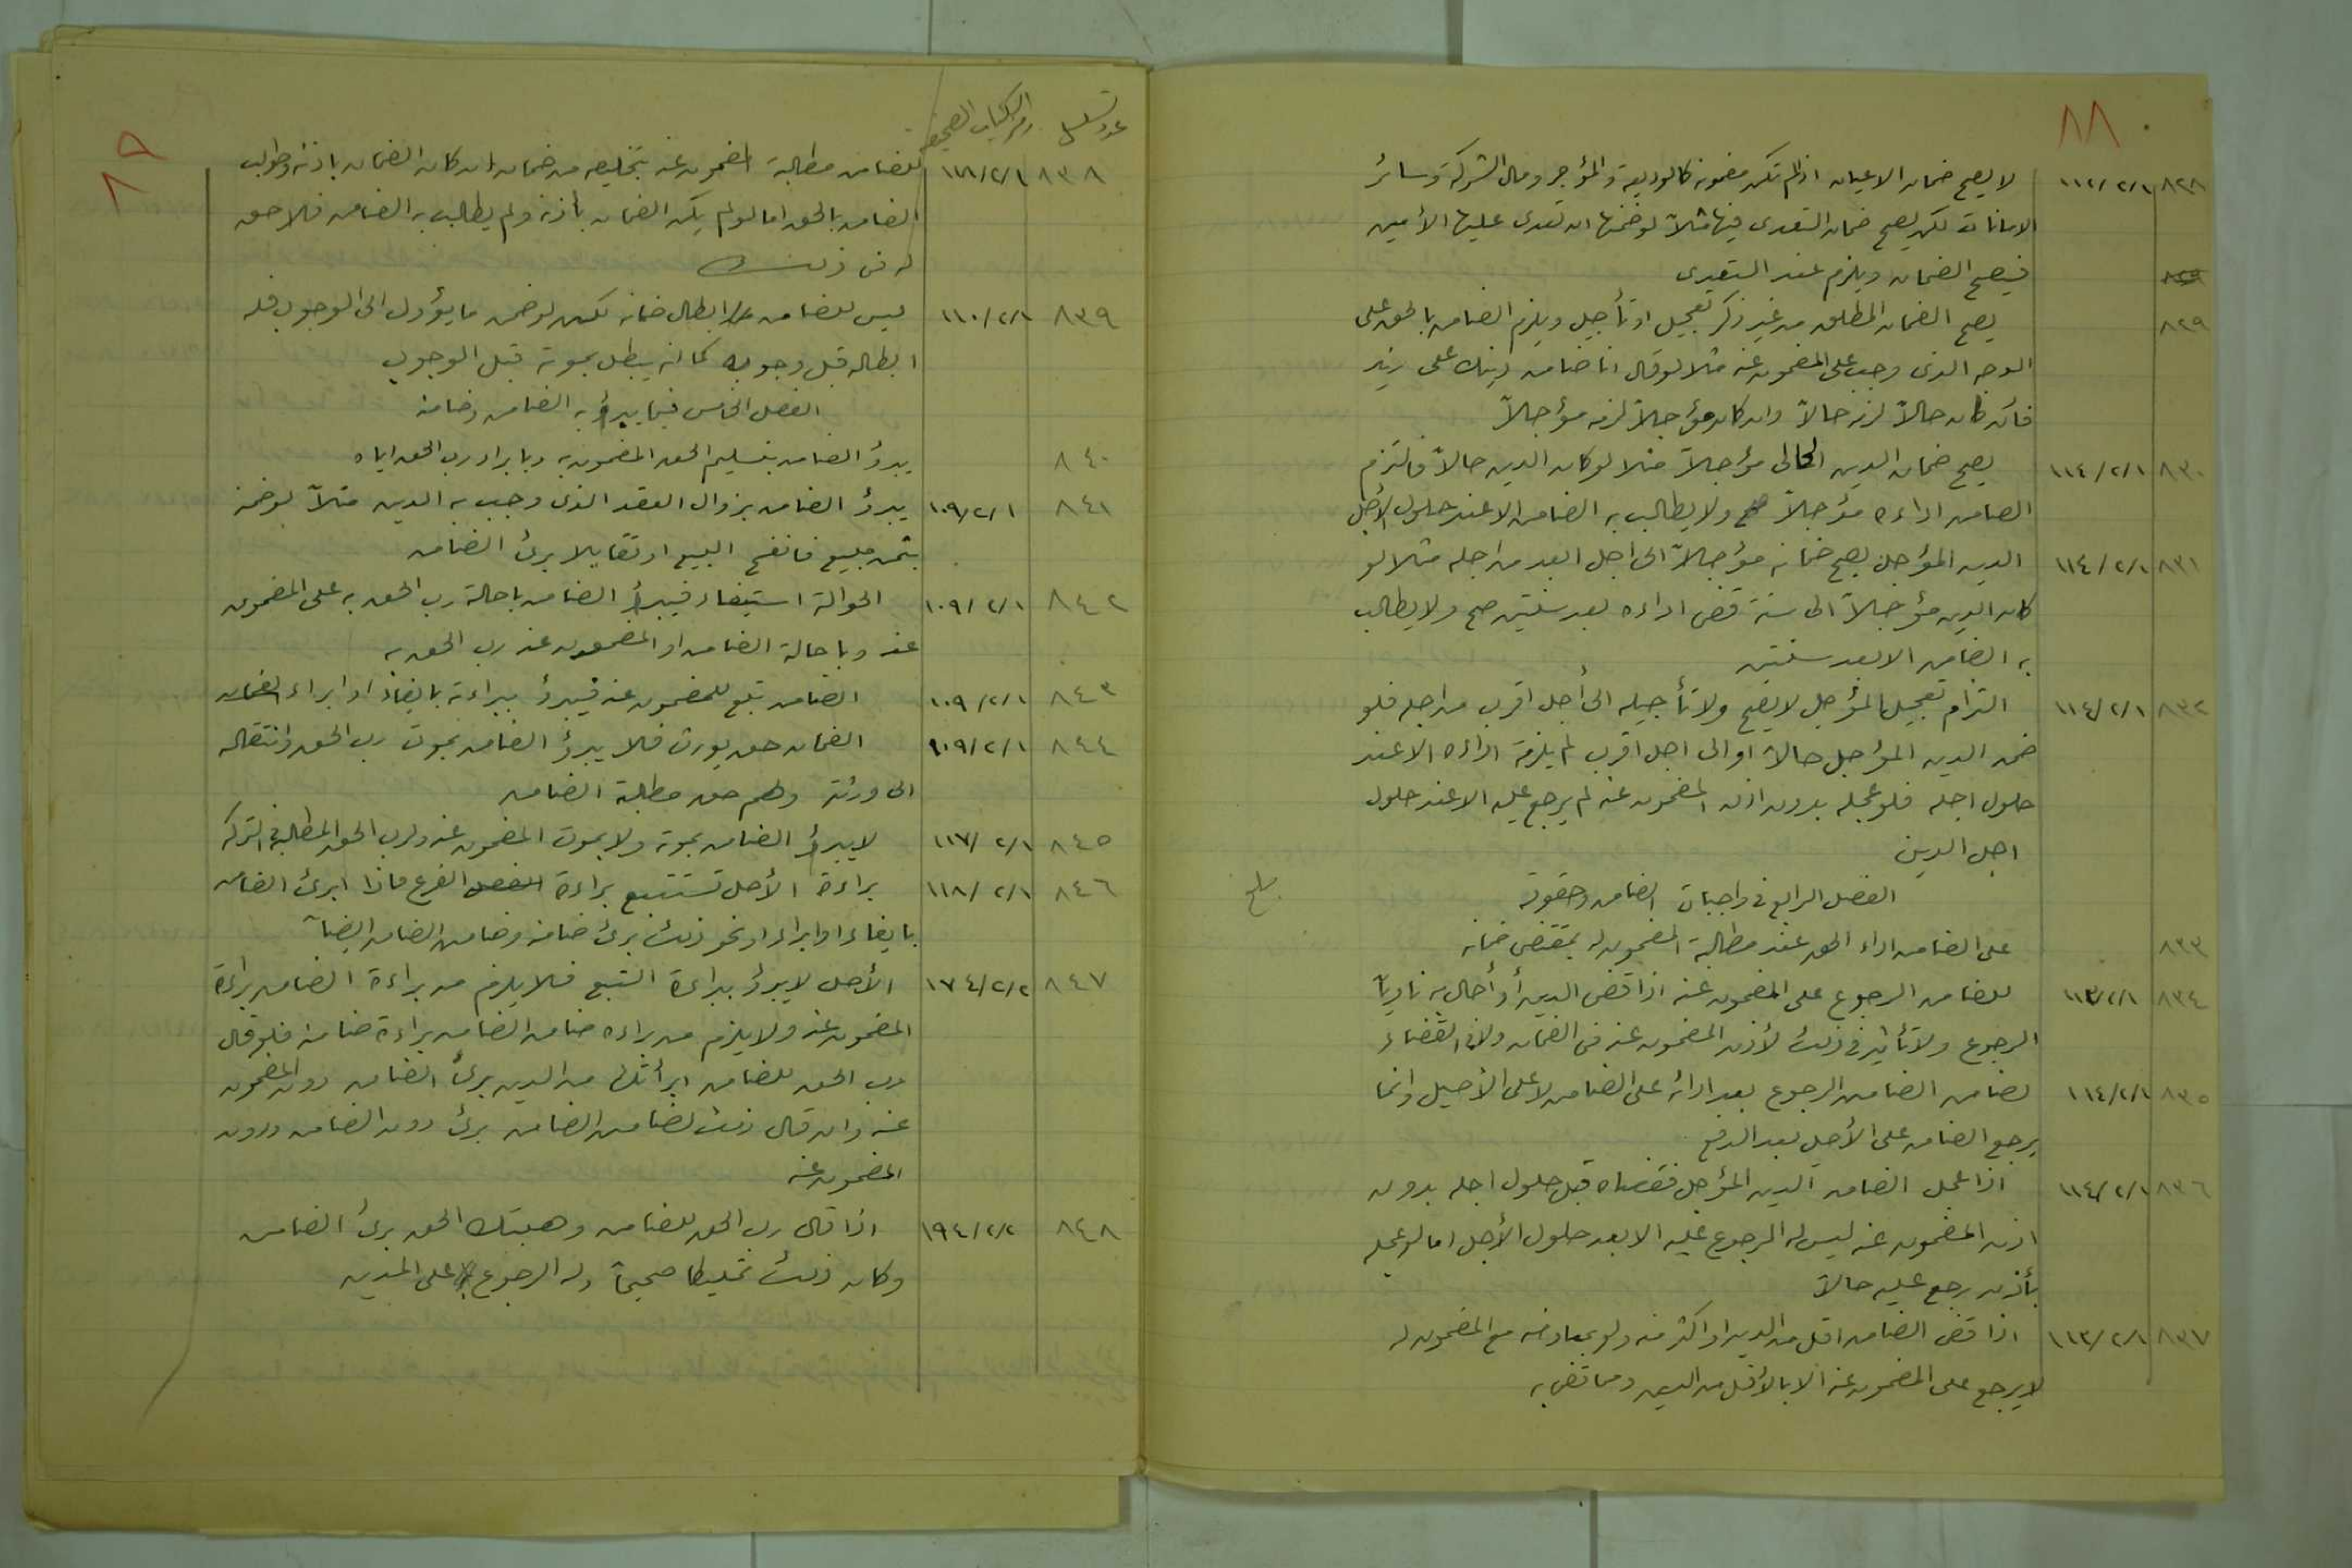 ٨٨
٨٢٨ ١١٢/٢/١ لا يصح ضمان الاعيان اذا لم تكن مضمونة كالوديعة والمؤجر ومال الشركة وسائر
الامانات لكن يصح ضمان التعدي فيها مثلاً لو ضمنها ان تعدى عليها الأمين
فيصح الضمان ويلزم عند التعدي
٨٢٩ يصح الضمان المطلق من غير ذكر تعجيل او تأجيل ويلزم الضامن بالحق على
الوجه الذي وجب على المضمون عنه مثلا لو قال انا ضامن دينك على زيد
فان كان حالاً لزمه حالاً وان كان مؤجلاً لزمه مؤجلاً
٨٣٠ ١١٤/٢/١ يصح ضمان الدين الحالى مؤجلاً مثلا لو كان الدين حالاً فالتزم
الضامن اداءه مؤجلاً صح ولا يطالب به الضامن الا عند حلول الأجل
٨٣١ ١١٤/٢/١ الدين المؤجل يصح ضمانه مؤجلاً الى اجل ابعد من اجله مثلا لو
كان الدين مؤجلاً الى سنة فضمن اداءه بعد سنتين صح ولا يطالب
به الضامن الا بعد سنتين
٨٣٢ ١١٤/٢/١ التزام تعجيل المؤجل لا يصح ولا تأجيله الى أجل اقرب من اجله فلو
ضمن الدين المؤجل حالاً او الى اجل اقرب لم يلزمه اداءه الا عند
حلول اجله فلو عجله بدون اذن المضمون عنه لم يرجع عليه الا عند حلول
اجل الدين
الفصل الرابع في واجبات الضامن وحقوقه
٨٣٣ على الضامن اداء الحق عند مطالبة المضمون له بمقتضى ضمانه
٨٣٤ ١١٣/٢/١ للضامن الرجوع على المضمون عنه اذا قضى الدين أو أحال به ناوياً
الرجوع ولا تأثير في ذلك لأذن المضمون عنه في الضمان ولا في القضاء
٨٣٥ ١١٤/٢/١ لضامن الضامن الرجوع بعد ادائه على الضامن لا على الأصيل وانما
يرجع الضامن على الأصيل بعد الدفع
٨٣٦ ١١٤/٢/١ اذا عجل الضامن الدين المؤجل فقضاه قبل حلول اجله بدون
اذن المضمون عنه ليس له الرجوع عليه الا بعد حلول الأجل اما لو عجله
بأذنه رجع عليه حالاً
٨٣٧ ١١٣/٢/١ اذا قضى الضامن اقل من الدين او اكثر منه ولو بمعاوضة مع المضمون له
لا يرجع على المضمون عنه الا بالأقل من الدين ومما قضى به
٨٩
عدد تسلسل رمز الكتاب الصحيفة
٨٣٨ ١١٨/٢/١ للضامن مطالبة المضمون عنه بتخليصه من ضمانه ان كان الضمان باذنه وطولب
الضامن بالحق اما لو لم يكن الضمان بأذنه ولم يطالب به الضامن فلا حق
له في ذلك
٨٣٩ ١١٠/٢/١ ليس للضامن ابطال ضمانه لكن لو ضمن ما يؤول الى الوجوب فله
ابطاله قبل وجوبه كما انه يبطل بموته قبل الوجوب
الفصل الخامس فيما يبرؤ به الضامن وضامنه
٨٤٠ يبرؤ الضامن بتسليم الحق المضمون به وبابراء رب الحق اياه
٨٤١ ١٠٩/٢/١ يبرؤ الضامن بزوال العقد الذي وجب به الدين مثلاً لو ضمنه
بثمن مبيع فانفسخ البيع او تقايلا برئ الضامن
٨٤٢ ١٠٩/٢/١ الحوالة استيفاء فيبرأ الضامن باحالة رب الحق به على المضمون
عنه وباحالة الضامن او المضمون عنه رب الحق به
٨٤٣ ١٠٩/٢/١ الضامن تبع للمضمون عنه فيبرؤ ببراءته بايفاء او ابراء
٨٤٤ ١٠٩/٢/١ الضمان حق يورث فلا يبرؤ الضامن بموت رب الحق وانتقاله
الى ورثته ولهم حق مطالبة الضامن
٨٤٥ ١١٧/٢/١ لا يبرؤ الضامن بموته ولا بموت المضمون عنه ولرب الحق المطالبة في التركة
٨٤٦ ١١٨/٢/١ براءة الأصل تستتبع براءة الفرع فاذا ابرئ الضامن
بايفاء او ابراء او نحو ذلك برئ ضامنه وضامن الضامن ايضاً
٨٤٧ ١٧٤/٢/٢ الأصل لا يبرؤ ببراءة التبع فلا يلزم من براءة الضامن براءة
المضمون عنه ولا يلزم من براءة ضامن الضامن براءة ضامنه فلو قال
رب الحق للضامن ابرأتك من الدين برئ الضامن دون المضمون
عنه وان قال ذلك لضامن الضامن برئ دون الضامن ودون
المضمون عنه
٨٤٨ ١٩٤/٢/٢ اذا قال رب الحق للضامن وهبتك الحق برئ الضامن
وكان ذلك تمليكا صحيحاً وله الرجوع على المدين